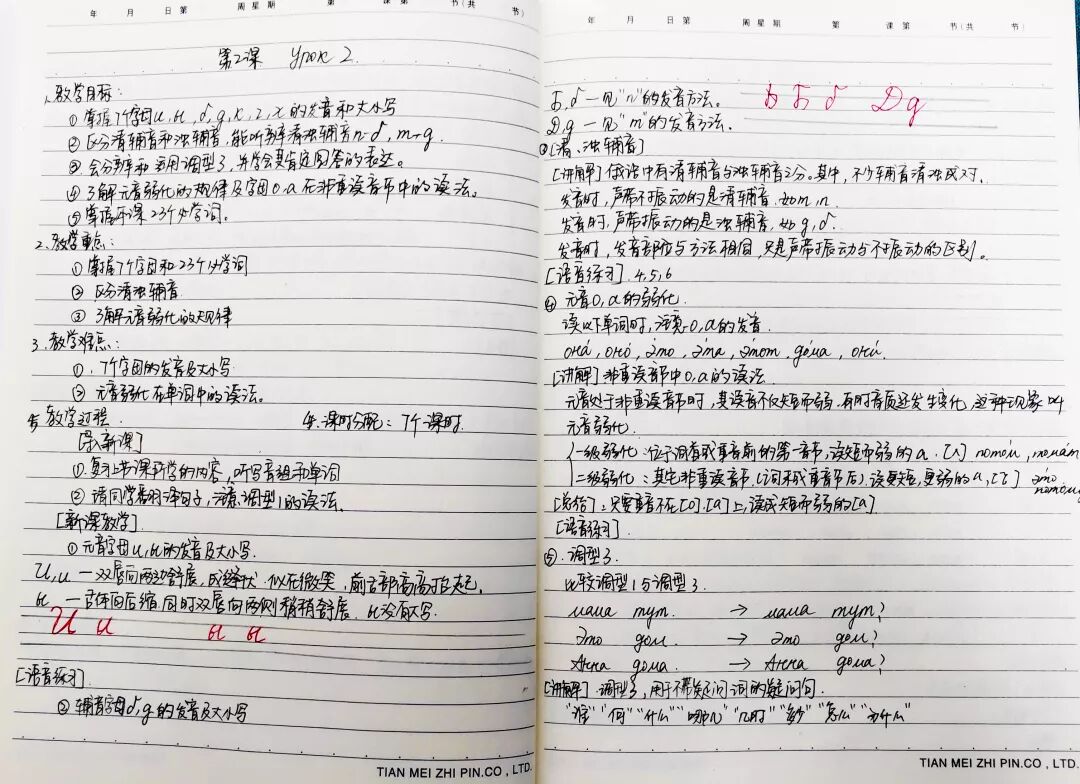 年 月 日 第 周 星期 第 课 第 节(共 节)
第2课 Урок 2
1. 教学目标:
① 掌握7个字母и, ы, б, д, к, г, х的发音和大小写
② 区分清辅音和浊辅音, 能听辨清浊辅音п-б, т-д.
③ 会分辨和运用调型3, 并学会其肯定回答的表达。
④ 了解元音弱化的规律及字母о, а在非重读音节中的读法。
⑤ 掌握本课23个必学词。
2. 教学重点:
① 掌握7个字母和23个必学词
② 区分清浊辅音
③ 了解元音弱化的规律
3. 教学难点:
①. 7个字母的发音及大小写
② 元音弱化在单词中的读法。
4. 课时分配: 7个课时.
5. 教学过程.
[导入新课]
① 复习上节课所学的内容, 听写音组和单词
② 请同学翻译句子, 注意调型1的读法.
[新课教学]
① 元音字母и, ы的发音及大小写.
И, и — 双唇向两边舒展, 成缝状, 似在微笑, 前舌部高高抬起.
ы — 舌体向后缩, 同时双唇向两侧稍稍舒展. ы没有大写.
И и ы ы
[语音练习]
② 辅音字母б, д的发音及大小写
TIAN MEI ZHI PIN.CO , LTD.
年 月 日 第 周 星期 第 课 第 节(共 节)
Б, б — 见"п"的发音方法。 Б Б б Д д
Д, д — 见"т"的发音方法.
③ [清、浊辅音]
[讲解] 俄语中有清辅音与浊辅音之分。其中, 不少辅音清浊成对.
发音时, 声带不振动的是清辅音. 如т, п.
发音时, 声带振动的是浊辅音, 如д, б.
发音时, 发音部位与方法相同, 只是声带振动与不振动的区别。
[语音练习] 4, 5, 6
④ 元音о, а的弱化.
读以下单词时, 注意о, а的发音.
она́, оно́, э́то, э́та, э́тот, до́ма, они́.
[讲解] 非重读音节中о, а的读法.
元音处于非重读音节时, 其读音不仅短而弱. 有时音质还发生变化, 这种现象叫
元音弱化.
一级弱化: 位于词首或重音前的第一音节, 读短而弱的а. [ʌ] пото́м, пома́н
二级弱化: 其它非重读音节. (词末或重音节后) 读更短, 更弱的а, [ъ] э́то
[总结]: 只要重音不在[о].[а]上, 读成短而弱的[а]
[语音练习].
⑤. 调型3.
比较调型1与调型3.
мама тут. → мама тут?
Это дом. → Это дом?
Анна дома. → Анна дома?
[讲解] 调型3, 用于不带疑问词的疑问句.
"谁" "何" "什么" "哪儿" "几时" "多少" "怎么" "为什么"
TIAN MEI ZHI PIN.CO , LTD.